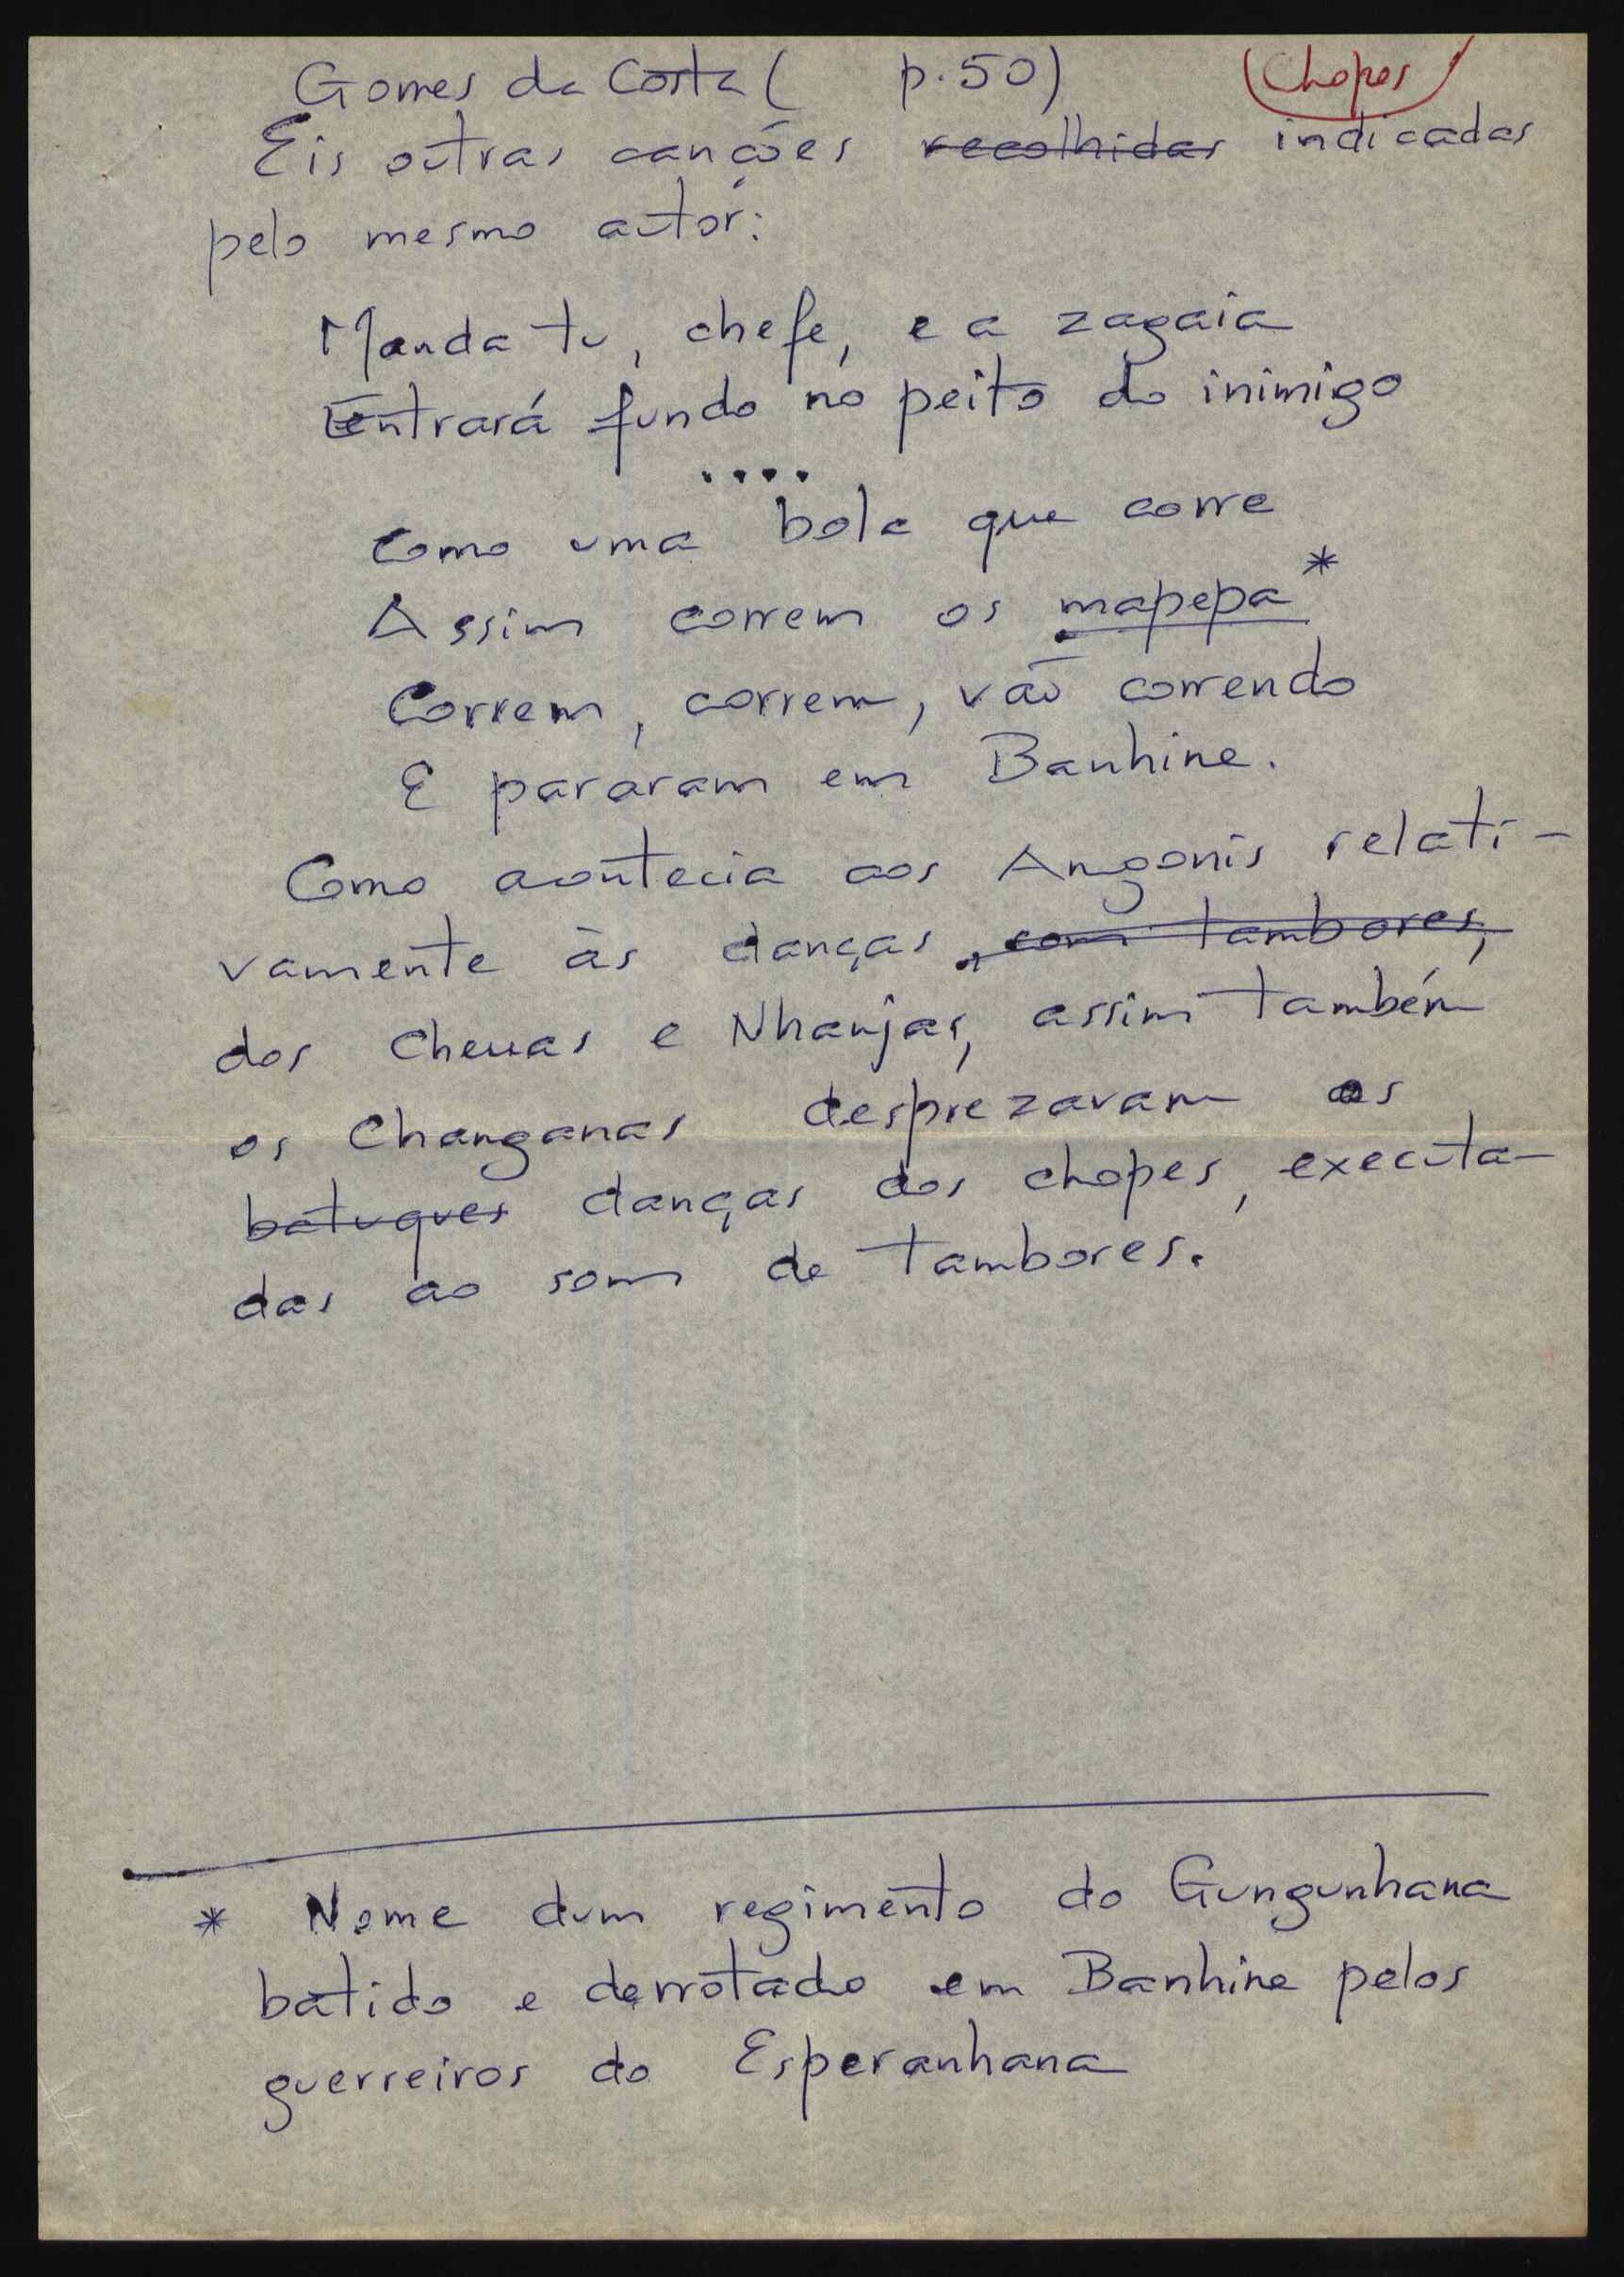 Gomes da Costa ( p. 50) Chopes
Eis outras canções recolhidas indicadas
pelo mesmo autor:
Manda tu, chefe, e a zagaia
Entrará fundo no peito do inimigo
....
Como uma bola que corre
Assim correm os mapepa*
Correm, correm, vão correndo
E pararam em Banhine.
Como acontecia aos Angonis relati-
vamente às danças, com tambores,
dos Cheuas e Nhanjas, assim também
os Changanas desprezavam as
batuques danças dos chopes, executa-
das ao som de tambores.
* Nome dum regimento do Gungunhana
batido e derrotado em Banhine pelos
guerreiros do Esperanhana